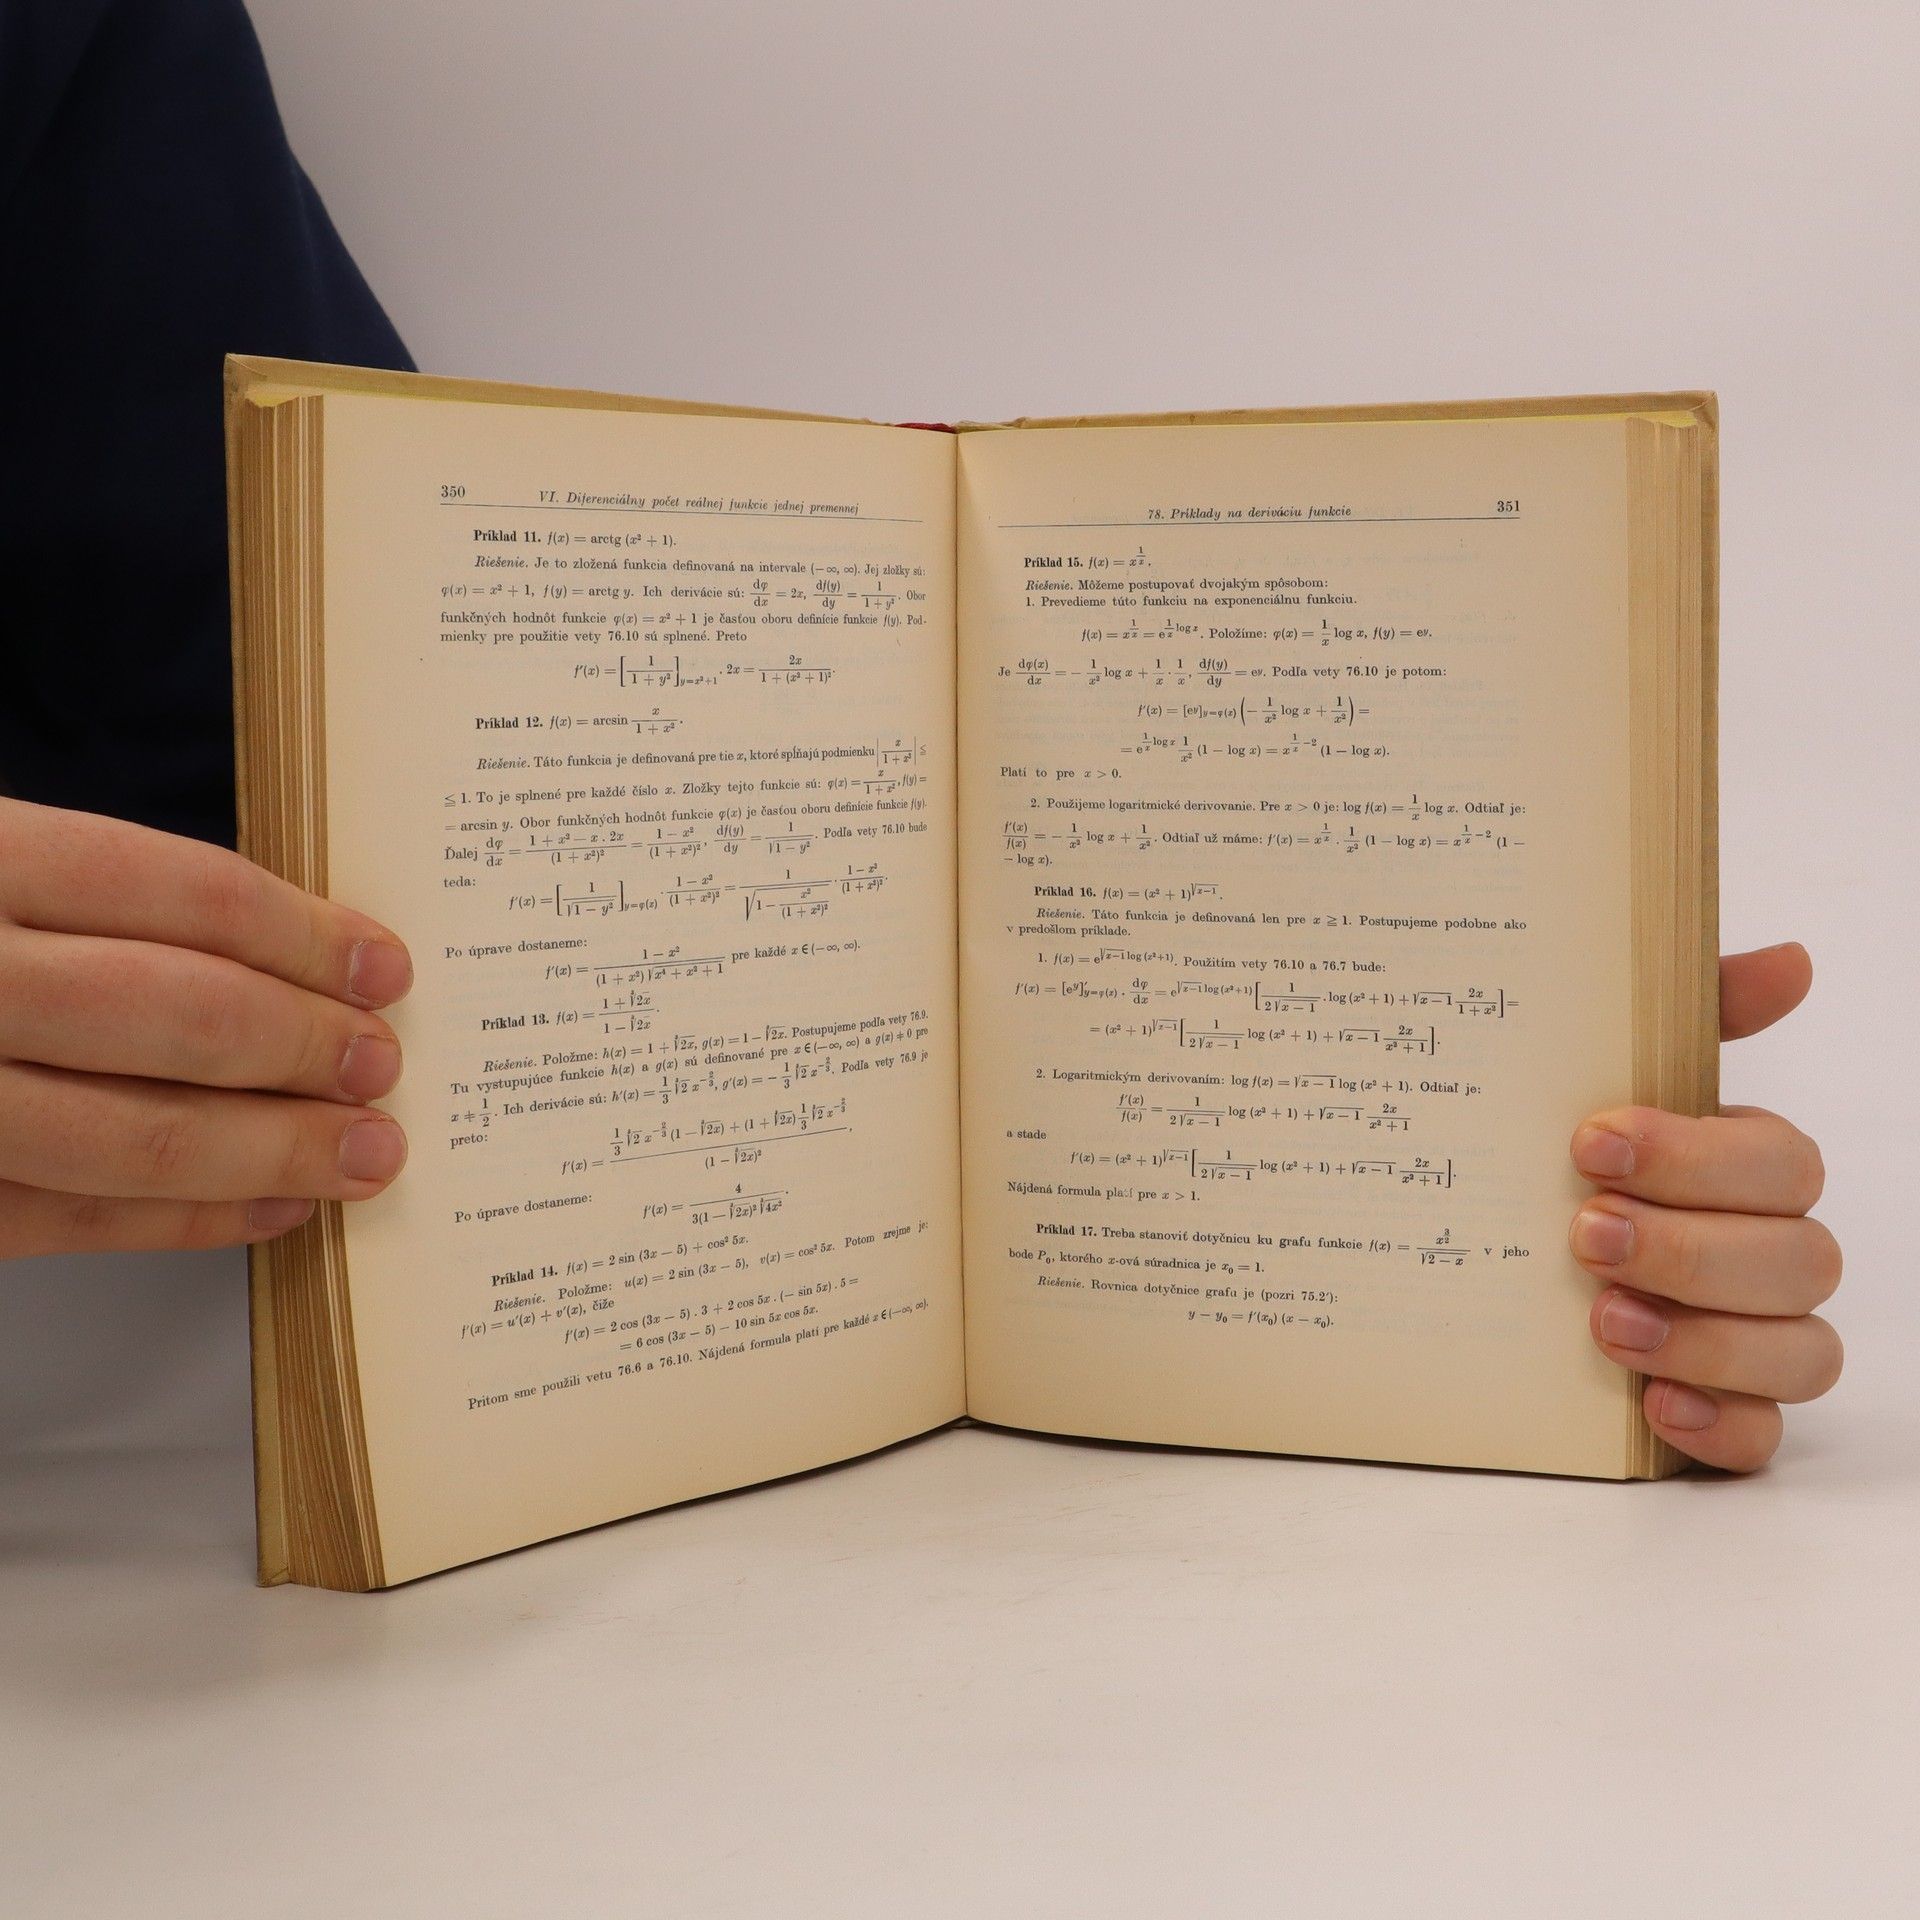 350
VI. Diferenciálny počet reálnej funkcie jednej premennej
Príklad 11. f(x) = arctg (x² + 1).
Riešenie. Je to zložená funkcia definovaná na intervale (−∞, ∞). Jej zložky sú:
φ(x) = x² + 1, f(y) = arctg y. Ich derivácie sú: dφ/dx = 2x, df(y)/dy = 1/(1 + y²). Obor
funkčných hodnôt funkcie φ(x) = x² + 1 je časťou oboru definície funkcie f(y). Pod-
mienky pre použitie vety 76.10 sú splnené. Preto
f′(x) = [1/(1 + y²)]y=x²+1 . 2x = 2x/(1 + (x² + 1)²).
Príklad 12. f(x) = arcsin x/(1 + x²).
Riešenie. Táto funkcia je definovaná pre tie x, ktoré spĺňajú podmienku |x/(1 + x²)| ≦
≦ 1. To je splnené pre každé číslo x. Zložky tejto funkcie sú: φ(x) = x/(1 + x²), f(y) =
= arcsin y. Obor funkčných hodnôt funkcie φ(x) je časťou oboru definície funkcie f(y).
Ďalej dφ/dx = (1 + x² − x . 2x)/(1 + x²)² = (1 − x²)/(1 + x²)², df(y)/dy = 1/√(1 − y²). Podľa vety 76.10 bude
teda:
f′(x) = [1/√(1 − y²)]y=φ(x) . (1 − x²)/(1 + x²)² = 1/√(1 − x²/(1 + x²)²) . (1 − x²)/(1 + x²)².
Po úprave dostaneme:
f′(x) = (1 − x²)/((1 + x²) √(x⁴ + x² + 1)) pre každé x ∈ (−∞, ∞).
Príklad 13. f(x) = (1 + ∛(2x))/(1 − ∛(2x)).
Riešenie. Položme: h(x) = 1 + ∛(2x), g(x) = 1 − ∛(2x). Postupujeme podľa vety 76.9.
Tu vystupujúce funkcie h(x) a g(x) sú definované pre x ∈ (−∞, ∞) a g(x) ≠ 0 pre
x ≠ 1/2. Ich derivácie sú: h′(x) = 1/3 ∛2 x^(−2/3), g′(x) = − 1/3 ∛2 x^(−2/3). Podľa vety 76.9 je
preto:
f′(x) = (1/3 ∛2 x^(−2/3) (1 − ∛(2x)) + (1 + ∛(2x)) 1/3 ∛2 x^(−2/3))/(1 − ∛(2x))²,
Po úprave dostaneme:
f′(x) = 4/(3(1 − ∛(2x))² ∛(4x²)).
Príklad 14. f(x) = 2 sin (3x − 5) + cos² 5x.
Riešenie. Položme: u(x) = 2 sin (3x − 5), v(x) = cos² 5x. Potom zrejme je:
f′(x) = u′(x) + v′(x), čiže
f′(x) = 2 cos (3x − 5) . 3 + 2 cos 5x . (− sin 5x) . 5 =
= 6 cos (3x − 5) − 10 sin 5x cos 5x.
Pritom sme použili vetu 76.6 a 76.10. Nájdená formula platí pre každé x ∈ (−∞, ∞).
78. Príklady na deriváciu funkcie
351
Príklad 15. f(x) = x^(1/x).
Riešenie. Môžeme postupovať dvojakým spôsobom:
1. Prevedieme túto funkciu na exponenciálnu funkciu.
f(x) = x^(1/x) = e^(1/x log x). Položíme: φ(x) = 1/x log x, f(y) = e^y.
Je dφ(x)/dx = − 1/x² log x + 1/x . 1/x, df(y)/dy = e^y. Podľa vety 76.10 je potom:
f′(x) = [e^y]y=φ(x) (− 1/x² log x + 1/x²) =
= e^(1/x log x) 1/x² (1 − log x) = x^(1/x −2) (1 − log x).
Platí to pre x > 0.
2. Použijeme logaritmické derivovanie. Pre x > 0 je: log f(x) = 1/x log x. Odtiaľ je:
f′(x)/f(x) = − 1/x² log x + 1/x². Odtiaľ už máme: f′(x) = x^(1/x) . 1/x² (1 − log x) = x^(1/x −2) (1 −
− log x).
Príklad 16. f(x) = (x² + 1)^√(x−1).
Riešenie. Táto funkcia je definovaná len pre x ≧ 1. Postupujeme podobne ako
v predošlom príklade.
1. f(x) = e^(√(x−1) log (x²+1)). Použitím vety 76.10 a 76.7 bude:
f′(x) = [e^y]′y=φ(x) . dφ/dx = e^(√(x−1) log (x²+1)) [1/(2√(x − 1)) . log (x² + 1) + √(x − 1) 2x/(1 + x²)] =
= (x² + 1)^√(x−1) [1/(2√(x − 1)) log (x² + 1) + √(x − 1) 2x/(x² + 1)].
2. Logaritmickým derivovaním: log f(x) = √(x − 1) log (x² + 1). Odtiaľ je:
f′(x)/f(x) = 1/(2√(x − 1)) log (x² + 1) + √(x − 1) 2x/(x² + 1)
a stade
f′(x) = (x² + 1)^√(x−1) [1/(2√(x − 1)) log (x² + 1) + √(x − 1) 2x/(x² + 1)].
Nájdená formula platí pre x > 1.
Príklad 17. Treba stanoviť dotyčnicu ku grafu funkcie f(x) = x^(3/2)/√(2 − x) v jeho
bode P₀, ktorého x-ová súradnica je x₀ = 1.
Riešenie. Rovnica dotyčnice grafu je (pozri 75.2′):
y − y₀ = f′(x₀) (x − x₀).